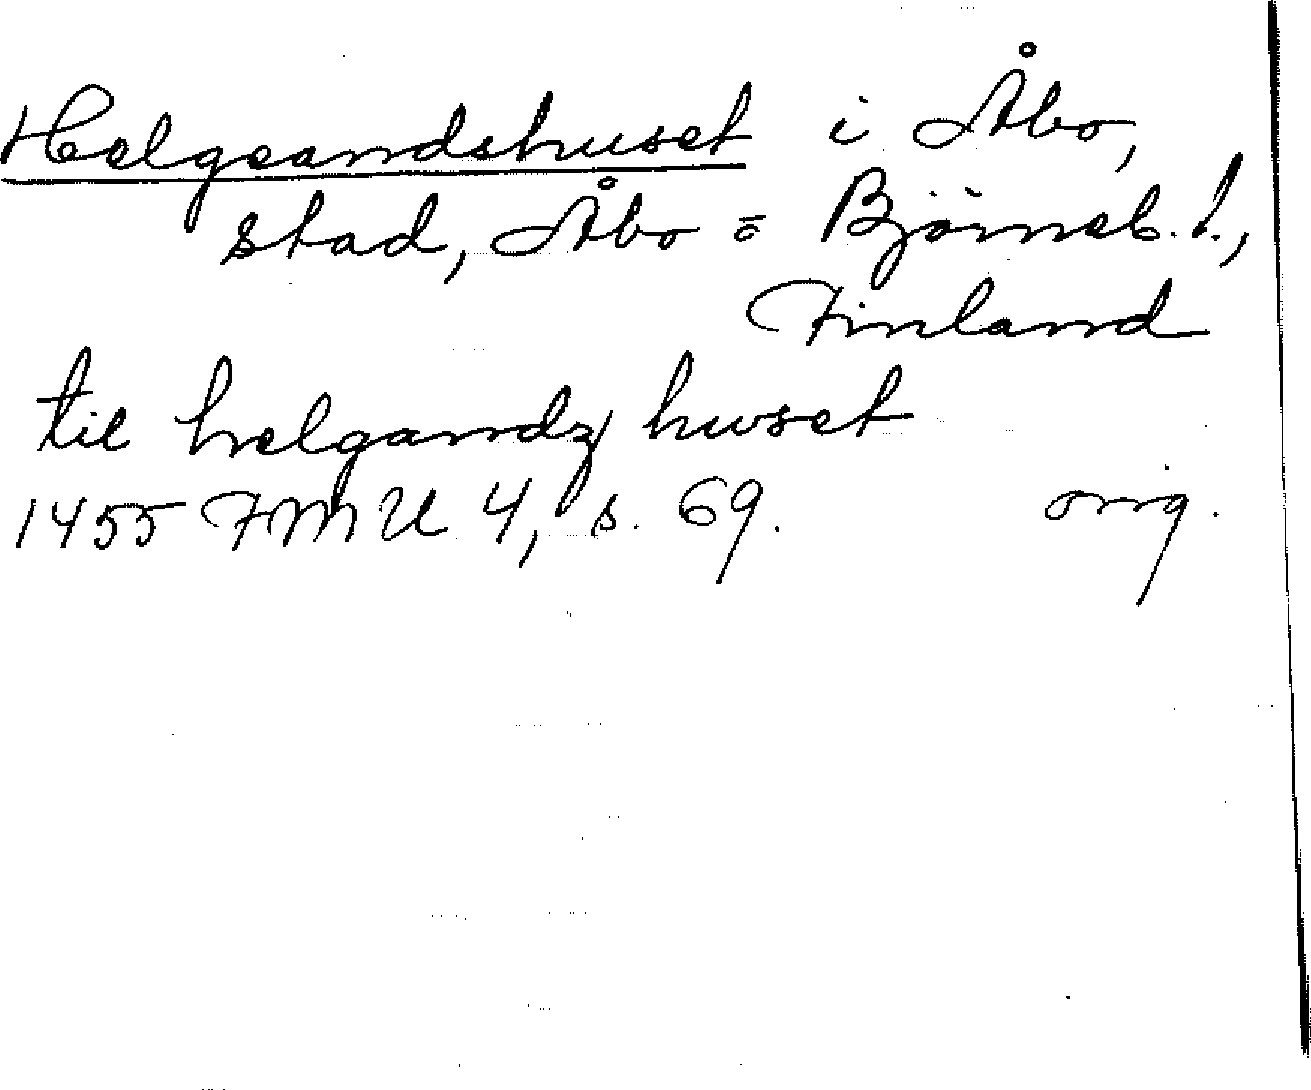 Helgeandshuset i Åbo,
stad, Åbo o Björneb. l.,
Finland
til helgandz huset
1455 FMU 4, s. 69. orig.